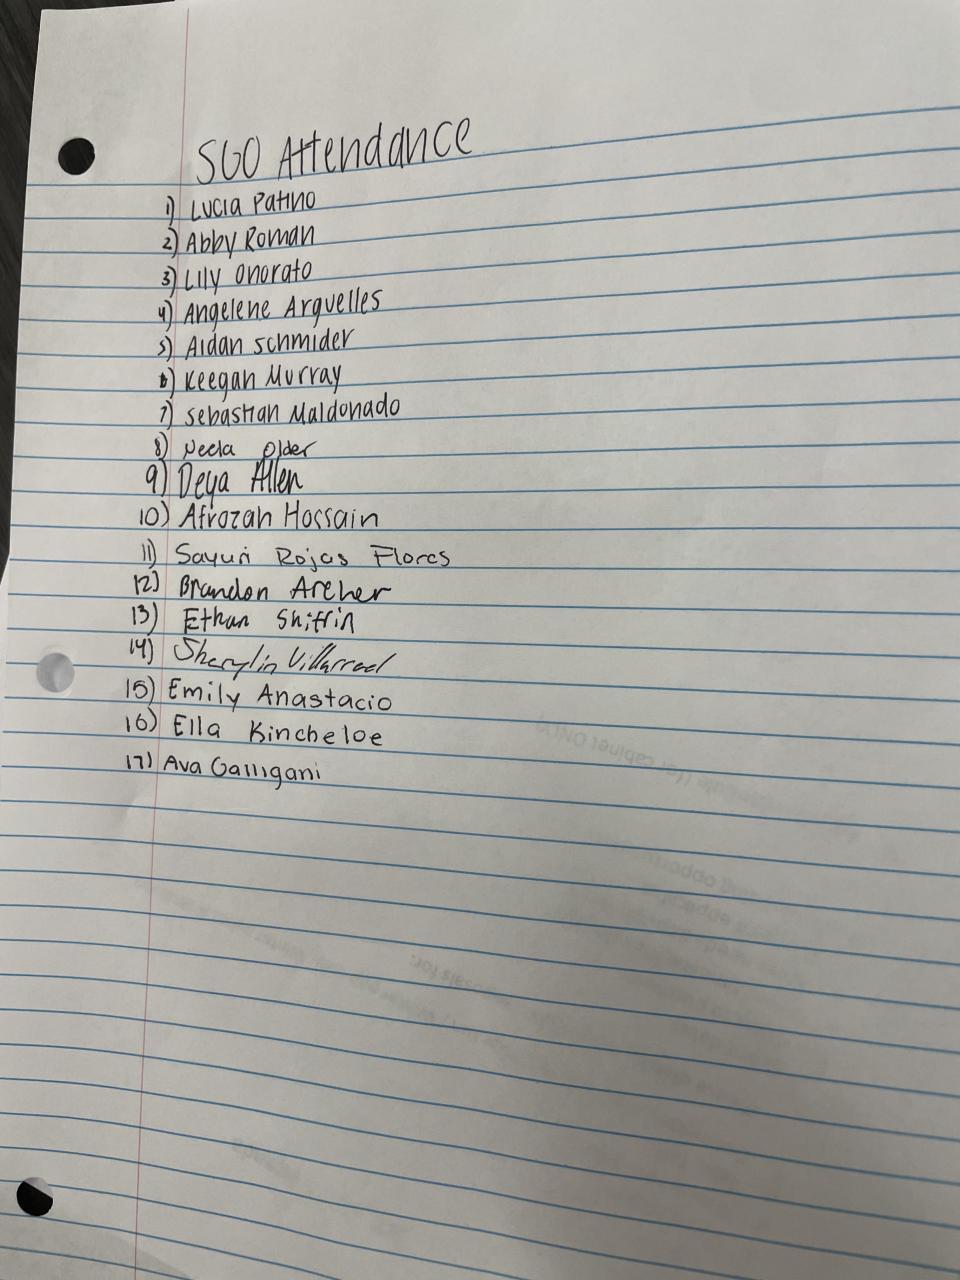 SGO Attendance
1) Lucia Patino
2) Abby Roman
3) Lily Onorato
4) Angelene Arguelles
5) Aidan Schmider
6) Keegan Murray
7) Sebastian Maldonado
8) Neela Older
9) Deya Allen
10) Afrozah Hossain
11) Sayuri Rojas Flores
12) Brandon Archer
13) Ethan Shiffrin
14) Sherylin Villarreal
15) Emily Anastacio
16) Ella Kincheloe
17) Ava Galligani